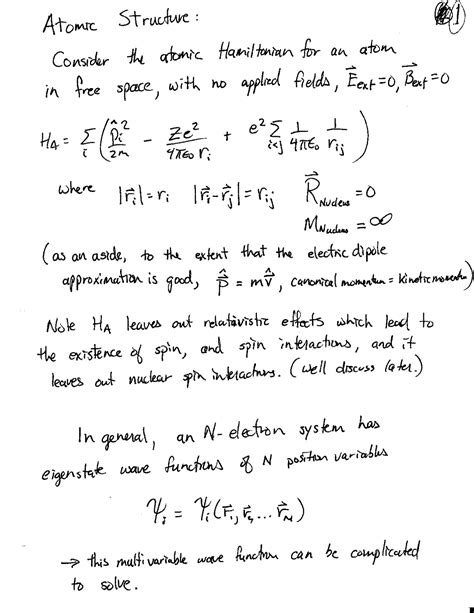 1
Atomic Structure:
Consider the atomic Hamiltonian for an atom
in free space, with no applied fields, E⃗ext=0, B⃗ext=0
H_A = Σ_i ( p̂_i²/2m − Ze²/4πε₀r_i + e² Σ_{i<j} 1/4πε₀ 1/r_ij )
where |r⃗_i|=r_i |r⃗_i-r⃗_j|=r_ij R⃗_Nucleus=0
M_Nucleus=∞
(as an aside, to the extent that the electric dipole
approximation is good, p̂⃗ = mv̂⃗, canonical momentum = kinetic momentum)
Note H_A leaves out relativistic effects which lead to
the existence of spin, and spin interactions, and it
leaves out nuclear spin interactions. (we'll discuss later.)
In general, an N-electron system has
eigenstate wave functions of N position variables
Ψ_i = Ψ_i(r⃗_1, r⃗_2 ... r⃗_N)
→ this multivariable wave function can be complicated
to solve.